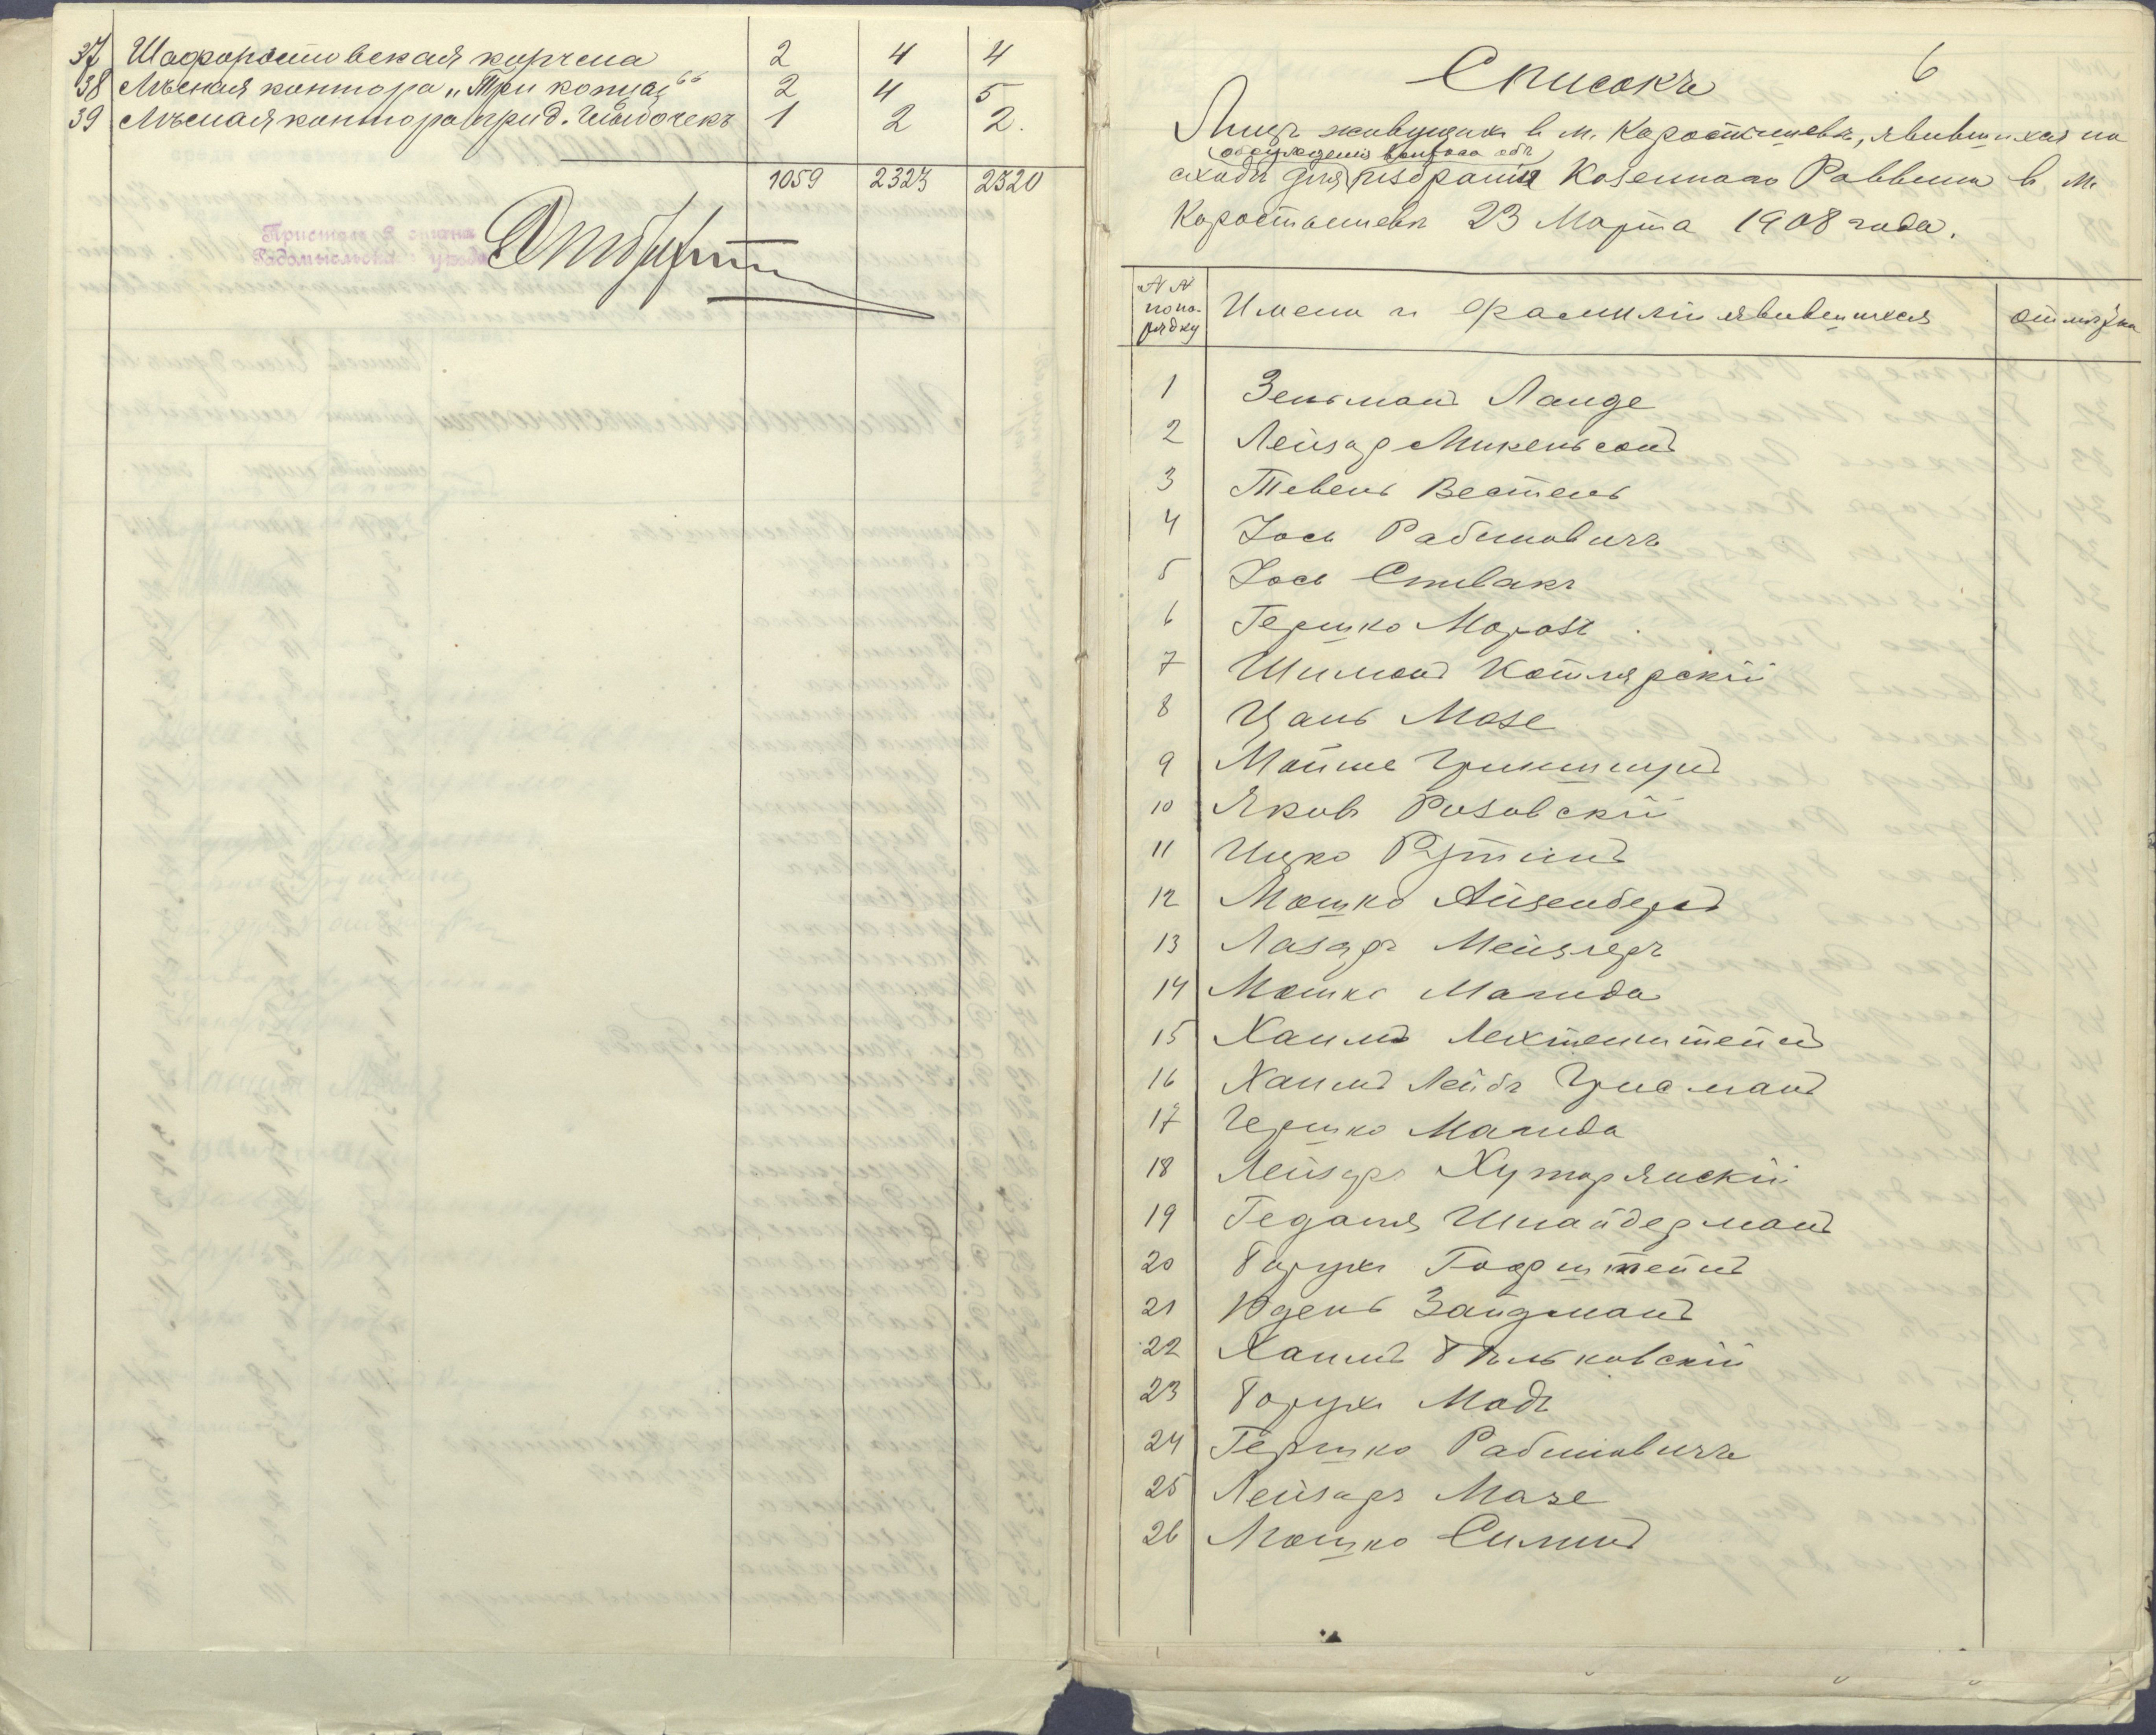 37 Шафоростовская корчма 2 4 4
38 Лѣсная контора „Три копца“ 2 4 5
39 Лѣсная контора при д. 1 2 2.
1059 2323 2320
Приставъ 2 стана
Радомысльскаго уѣзда
6
Списокъ
Лицъ живущихъ в м. Коростышевѣ, явившихся на
обсужденія вопроса объ
сходъ для избранія Казеннаго Раввина в м.
Коростышевѣ 23 Марта 1908 года.
№ № по порядку Имена и фамиліи явившихся Отмѣтка
1 Зельманъ Ланде
2 Лейзар Микельсонъ
3 Тевель Вестель
4 Іось Рабиновичъ
5 Іось Спивакъ
6 Гершко Морозъ
7 Шимонъ Котлярскій
8 Цаль Мазе
9 Мойше Гринштейнъ
10 Яковъ Розовскій
11 Ицко Рутинъ
12 Мошко Айзенбергъ
13 Лазаръ Мейзлеръ
14 Мошко Магида
15 Хаимъ Лехтенштейнъ
16 Хаимъ Лейбъ Грисманъ
17 Гершко Магида
18 Лейзаръ Хуторянскій
19 Гедалия Шнайдерманъ
20 Борухъ Гофштейнъ
21 Юдель Зайдманъ
22 Хаимъ Бѣльковскій
23 Борухъ Мадъ
24 Гершко Рабиновичъ
25 Лейзаръ Мазе
26 Мошко Симинъ